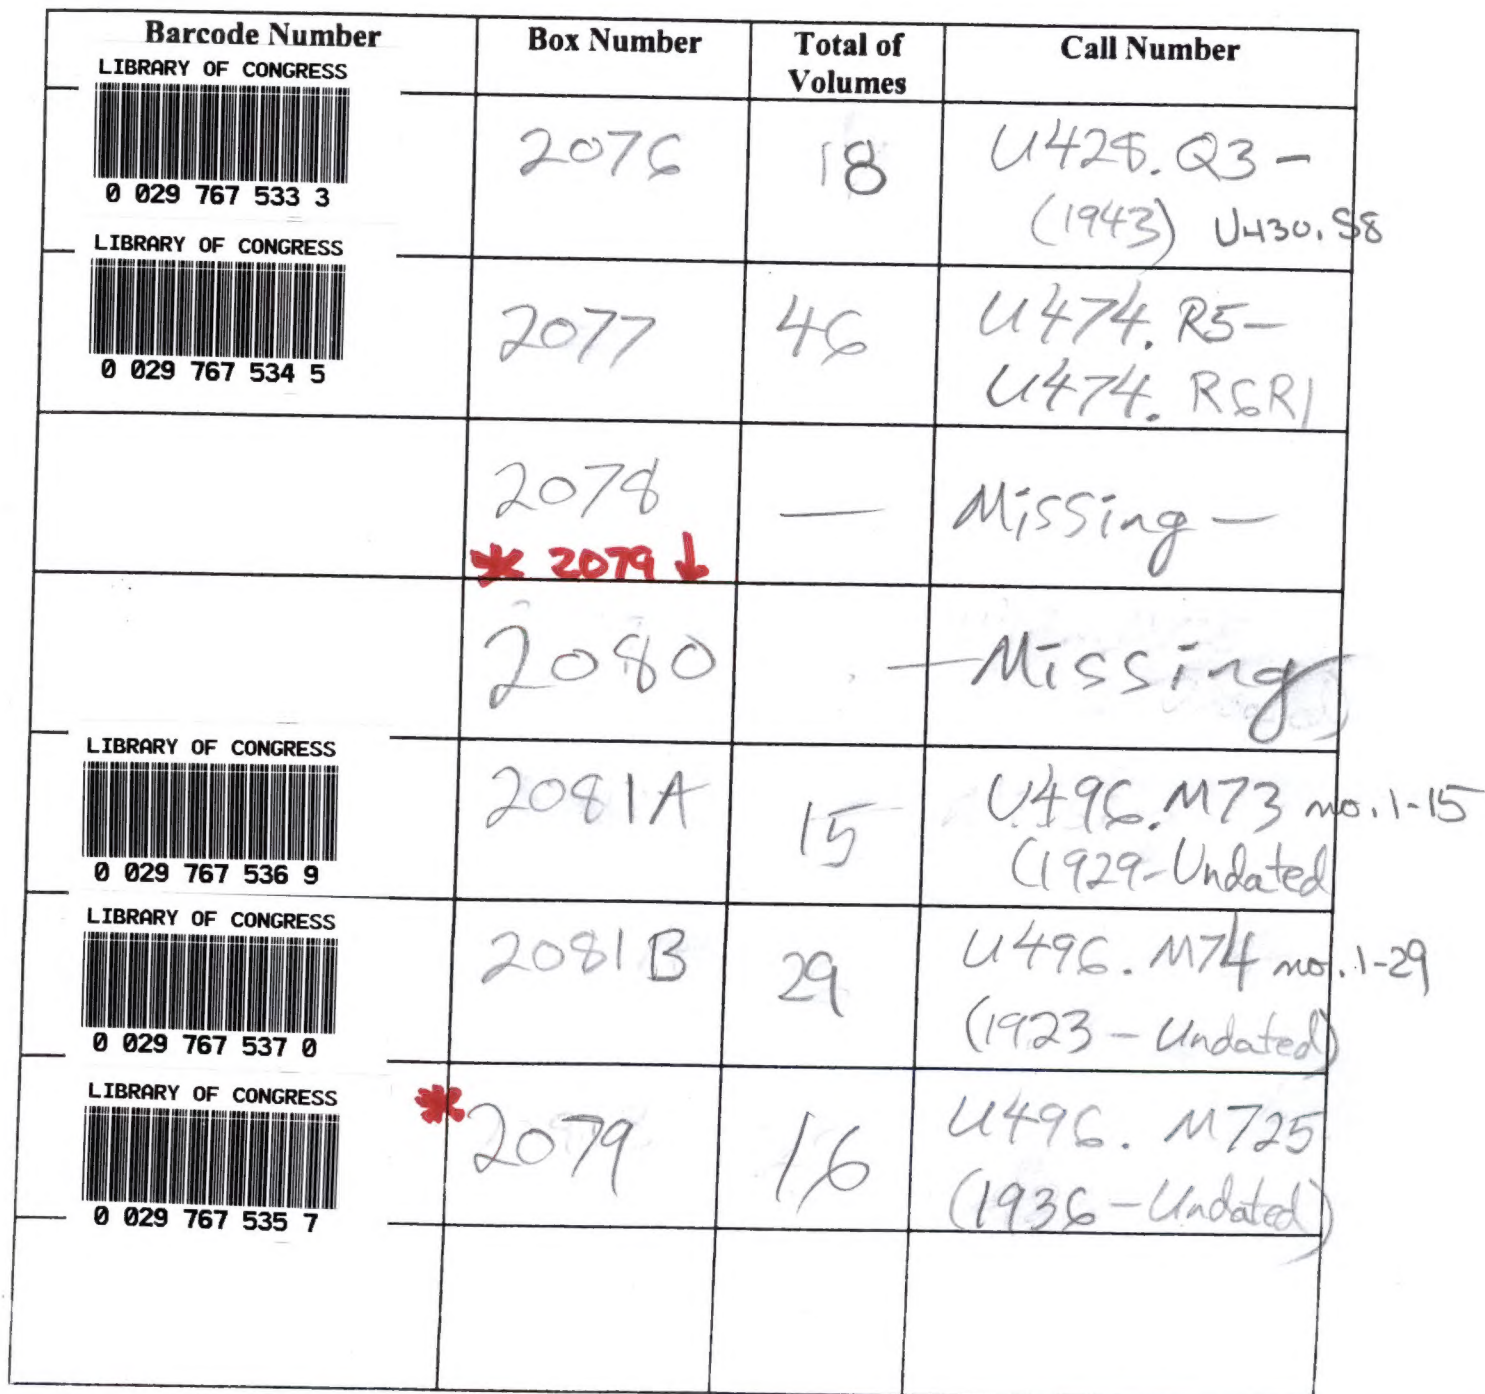 Barcode Number Box Number Total of Volumes Call Number
LIBRARY OF CONGRESS
0 029 767 533 3
2076 18 U428.Q3 -
(1943) U430.S8
LIBRARY OF CONGRESS
0 029 767 534 5
2077 46 U474.R5-
U474.R6R1
2078 — Missing -
* 2079 ↓
2080 - Missing
LIBRARY OF CONGRESS
0 029 767 536 9
2081A 15 U496.M73 no.1-15
(1929-Undated
LIBRARY OF CONGRESS
0 029 767 537 0
2081B 29 U496.M74 no.1-29
(1923-Undated)
LIBRARY OF CONGRESS
0 029 767 535 7
* 2079 16 U496.M725
(1936-Undated)